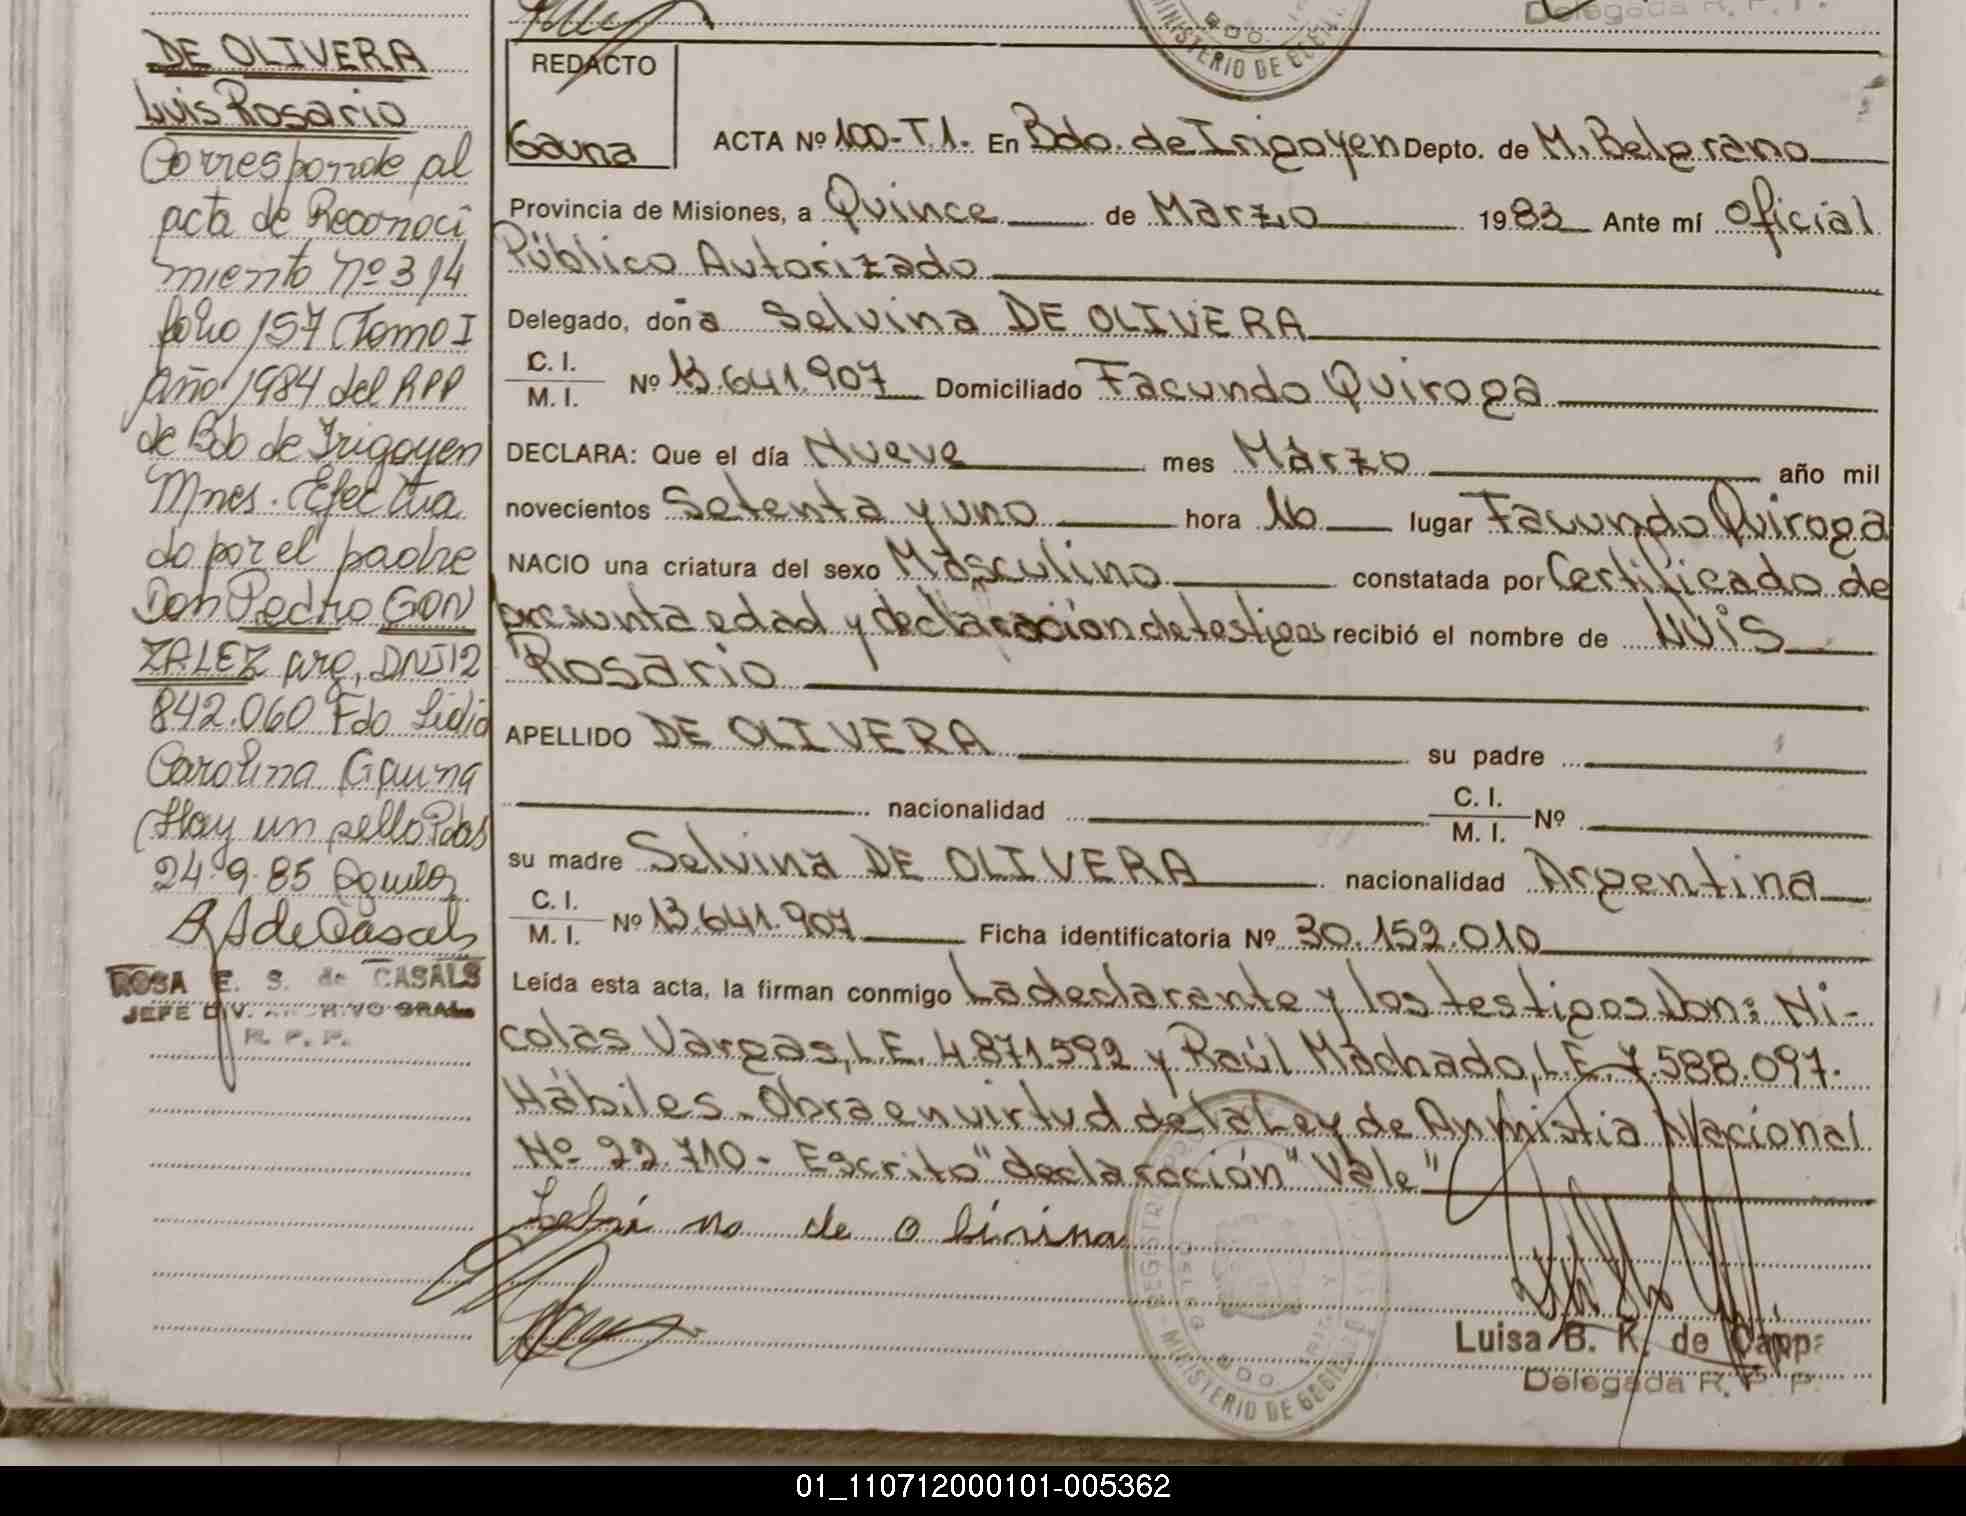 MINISTERIO DE
Delegada R. P. P.
DE OLIVERA
Luis Rosario
Corresponde al
acta de Reconoci
miento Nº 314
folio 157 Tomo I
Año 1984 del RPP
de Bdo de Irigoyen
Mnes. Efectua
do por el padre
Don Pedro GON
ZALEZ arg, DNI 12
842.060 Fdo Lidia
Carolina Gauna
(Hay un sello Pdas
24-9-85
R A de Casals
ROSA E. S. de CASALS
JEFE DIV. ARCHIVO GRAL.
R. P. P.
REDACTO
Gauna
ACTA Nº 100-T.1. En Bdo. de Irigoyen Depto. de M. Belgrano
Provincia de Misiones, a Quince de Marzo 1983 Ante mí Oficial
Público Autorizado
Delegado, doña Selvina DE OLIVERA
C. I.
M. I. Nº 13.641.907 Domiciliado Facundo Quiroga
DECLARA: Que el día Nueve mes Marzo año mil
novecientos Setenta y uno hora 16 lugar Facundo Quiroga
NACIO una criatura del sexo Masculino constatada por Certificado de
presunta edad y declaración de testigos recibió el nombre de Luis
Rosario
APELLIDO DE OLIVERA su padre
nacionalidad C. I. M. I. Nº
su madre Selvina DE OLIVERA nacionalidad Argentina
C. I.
M. I. Nº 13.641.907 Ficha identificatoria Nº 30.152.010
Leída esta acta, la firman conmigo La declarante y los testigos Don: Ni-
colas Vargas, L.E. 4.871.592 y Raúl Machado, L.E. 7.588.097.
Hábiles. Obra en virtud de la Ley de Anmistia Nacional
Nº 22.710- Escrito "declaración" Vale"
de o
MINISTERIO DE
Luisa B. K. de
Delegada R. P. P.
01_110712000101-005362